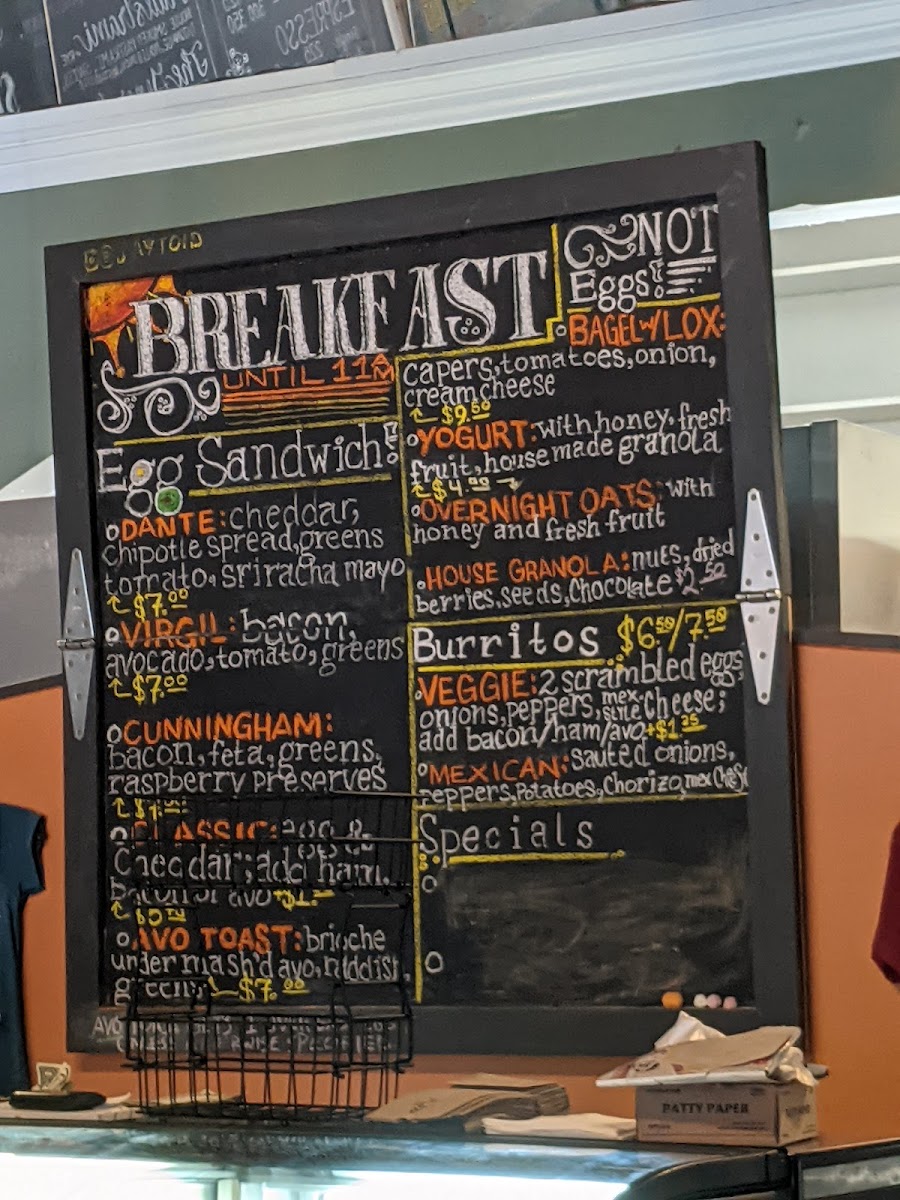 ESPRESSO
BREAKFAST
UNTIL 11AM
Egg Sandwich
DANTE: cheddar,
chipotle spread, greens
tomato, sriracha mayo
$7.00
VIRGIL: bacon,
avocado, tomato, greens
$7.00
CUNNINGHAM:
bacon, feta, greens,
raspberry preserves
CLASSIC: egg &
Cheddar; add ham,
bacon or avo
AVO TOAST: brioche
under mash'd avo,
greens $7.00
NOT
Eggs!
BAGEL W/ LOX:
capers, tomatoes, onion,
cream cheese
$9.50
YOGURT: with honey, fresh
fruit, house made granola
$4.00
OVERNIGHT OATS: with
honey and fresh fruit
HOUSE GRANOLA: nuts, dried
berries, seeds, Chocolate $2.50
Burritos $6.50/7.50
VEGGIE: 2 scrambled eggs,
onions, peppers, mex-STYLE cheese;
add bacon/ham/avo +$1.25
MEXICAN: sauted onions,
peppers, Potatoes, Chorizo, mex
Specials
PATTY PAPER